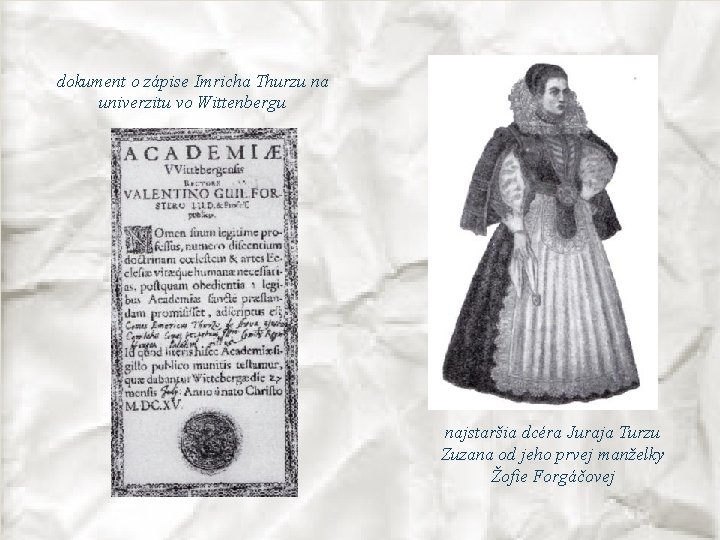 dokument o zápise Imricha Thurzu na
univerzitu vo Wittenbergu
ACADEMIÆ
VVittēbergensis
RECTORE
VALENTINO GUIL. FOR-
STERO I.U.D. & Profess.
publico.
NOmen suum legitime pro-
fessus, numero discentium
doctrinam cœlestem & artes Ec-
clesiæ vitæque humanæ necessari-
as, postquam obedientia legi-
bus Academiæ sanctè præstan-
dam promisisset, adscriptus est
Comes Emericus Thurzo de
Id quod literis hisce Academiæ si-
gillo publico munitis testamur,
quæ dabuntur Wittebergæ die 27
mensis July. Anno á nato Christo
M.DC.XV.
najstaršia dcéra Juraja Turzu
Zuzana od jeho prvej manželky
Žofie Forgáčovej